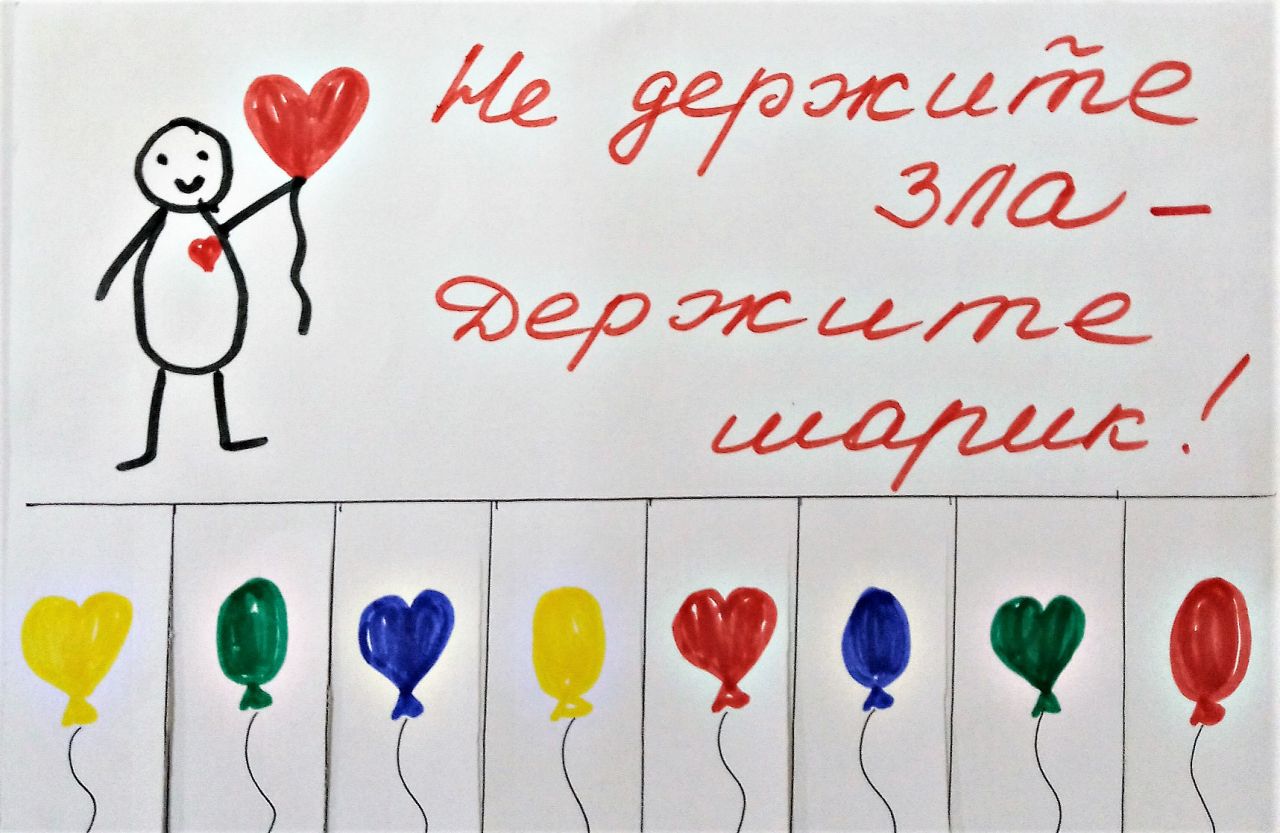 Не держите
зла –
Держите
шарик!